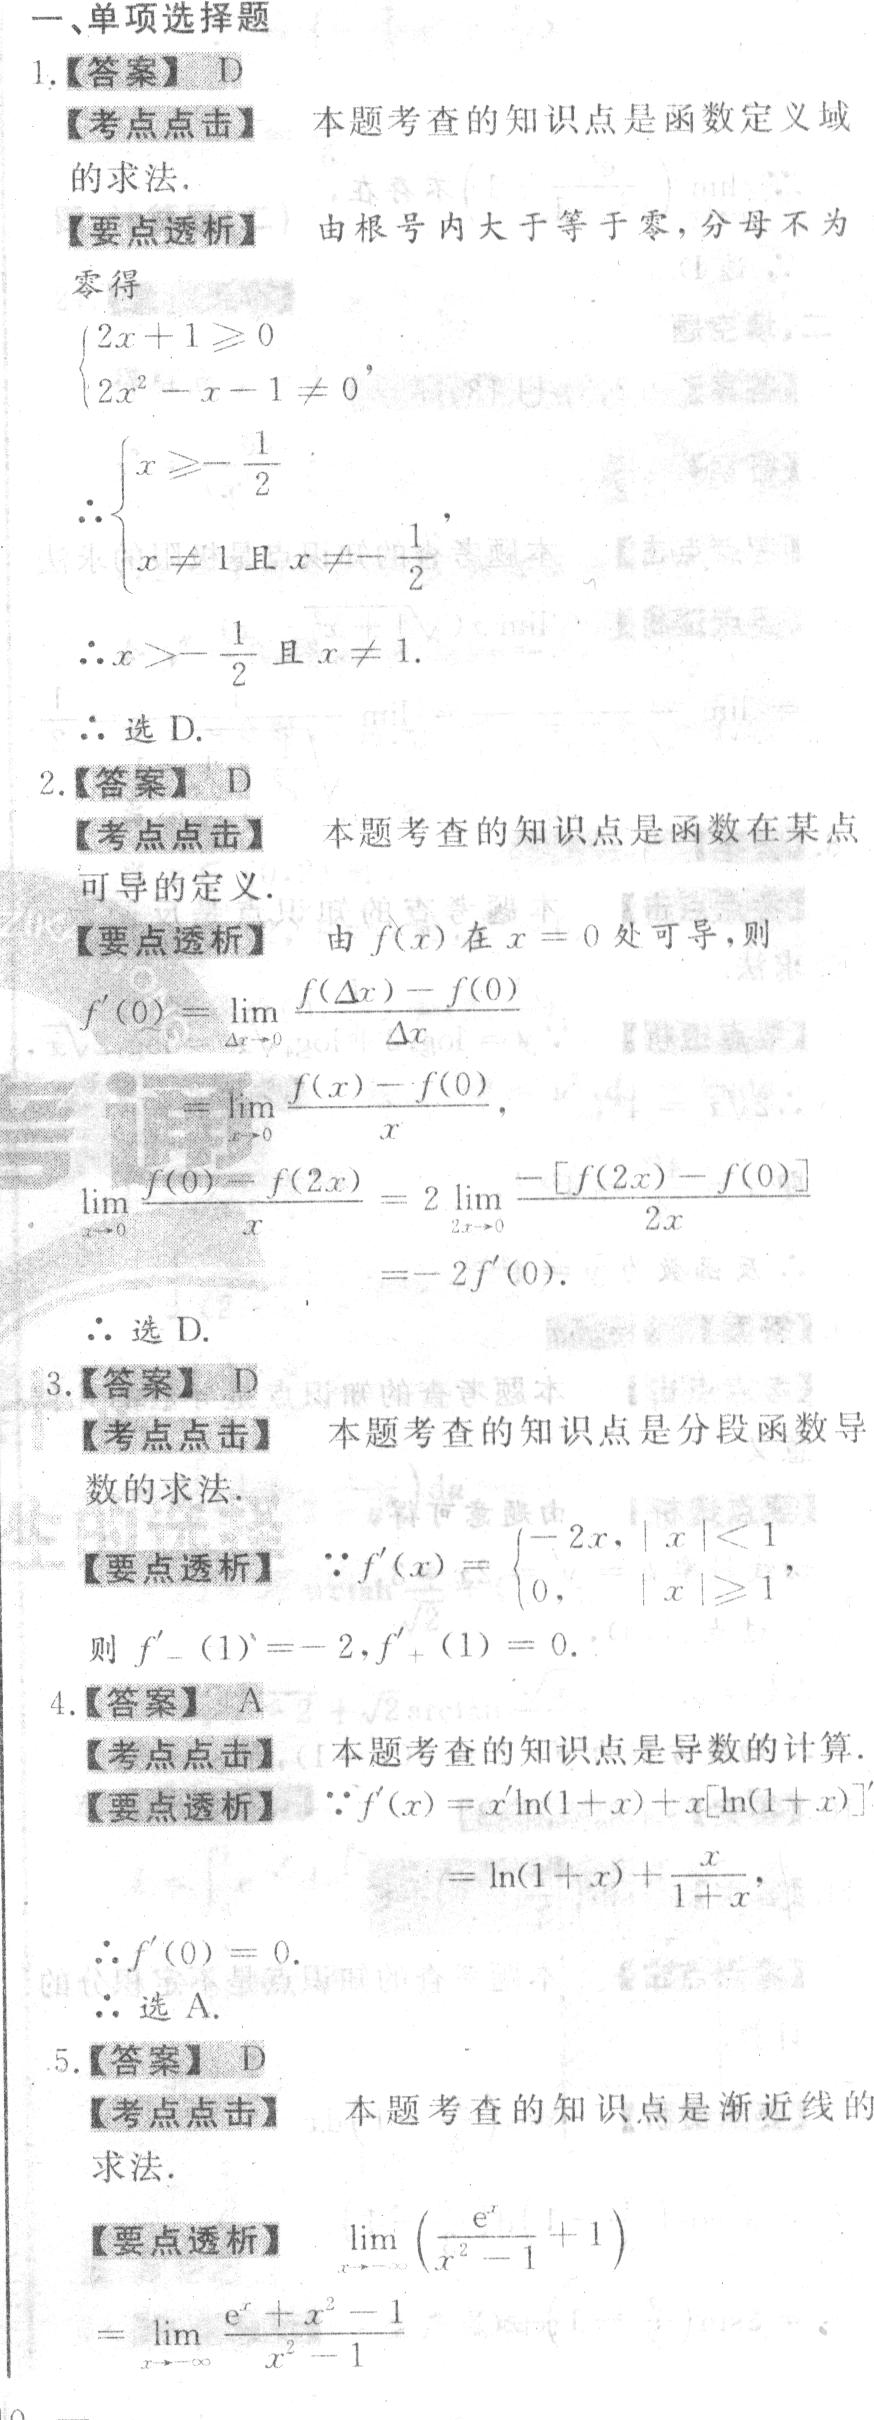 一、单项选择题
1.【答案】 D
【考点点击】 本题考查的知识点是函数定义域
的求法.
【要点透析】 由根号内大于等于零,分母不为
零得
{2x+1≥0
2x²-x-1≠0,
∴{x≥-1/2
x≠1且x≠-1/2,
∴x>-1/2且x≠1.
∴ 选 D.
2.【答案】 D
【考点点击】 本题考查的知识点是函数在某点
可导的定义.
【要点透析】 由 f(x) 在 x = 0 处可导,则
f′(0) = lim_{Δx→0} (f(Δx)-f(0))/Δx
= lim_{x→0} (f(x)-f(0))/x,
lim_{x→0} (f(0)-f(2x))/x = 2 lim_{2x→0} (-[f(2x)-f(0)])/2x
=-2f′(0).
∴ 选 D.
3.【答案】 D
【考点点击】 本题考查的知识点是分段函数导
数的求法.
【要点透析】 ∵f′(x) = {-2x, |x|<1
0, |x|≥1,
则 f′₋(1)=-2,f′₊(1)=0.
4.【答案】 A
【考点点击】 本题考查的知识点是导数的计算.
【要点透析】 ∵f′(x)=x′ln(1+x)+x[ln(1+x)]′
=ln(1+x)+x/(1+x),
∴f′(0)=0.
∴ 选 A.
5.【答案】 D
【考点点击】 本题考查的知识点是渐近线的
求法.
【要点透析】 lim_{x→-∞} (eˣ/(x²-1)+1)
= lim_{x→-∞} (eˣ+x²-1)/(x²-1)